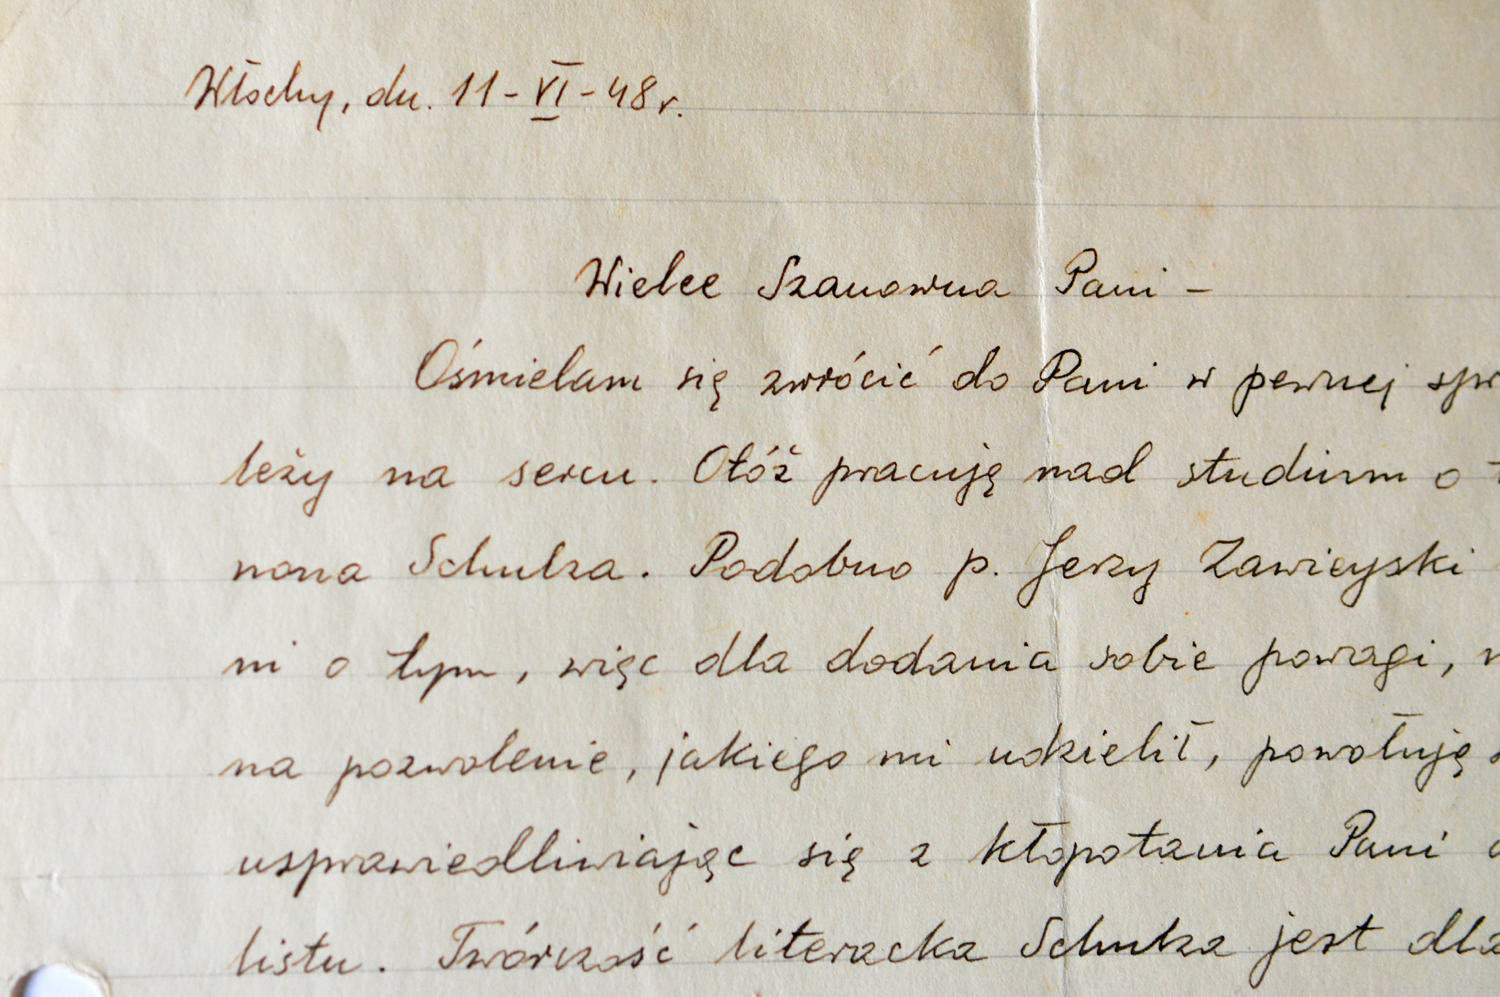 Włochy, dn. 11-VI-48 r.
Wielce Szanowna Pani -
Ośmielam się zwrócić do Pani w pewnej spr
leży na sercu. Otóż pracuję nad studium o
nona Schulza. Podobno p. Jerzy Zawieyski
ni o tym, więc dla dodania sobie powagi,
na pozwolenie, jakiego mi udzielił, powołuję
usprawiedliwiając się z kłopotania Pani
listu. Twórczość literacka Schulza jest dla